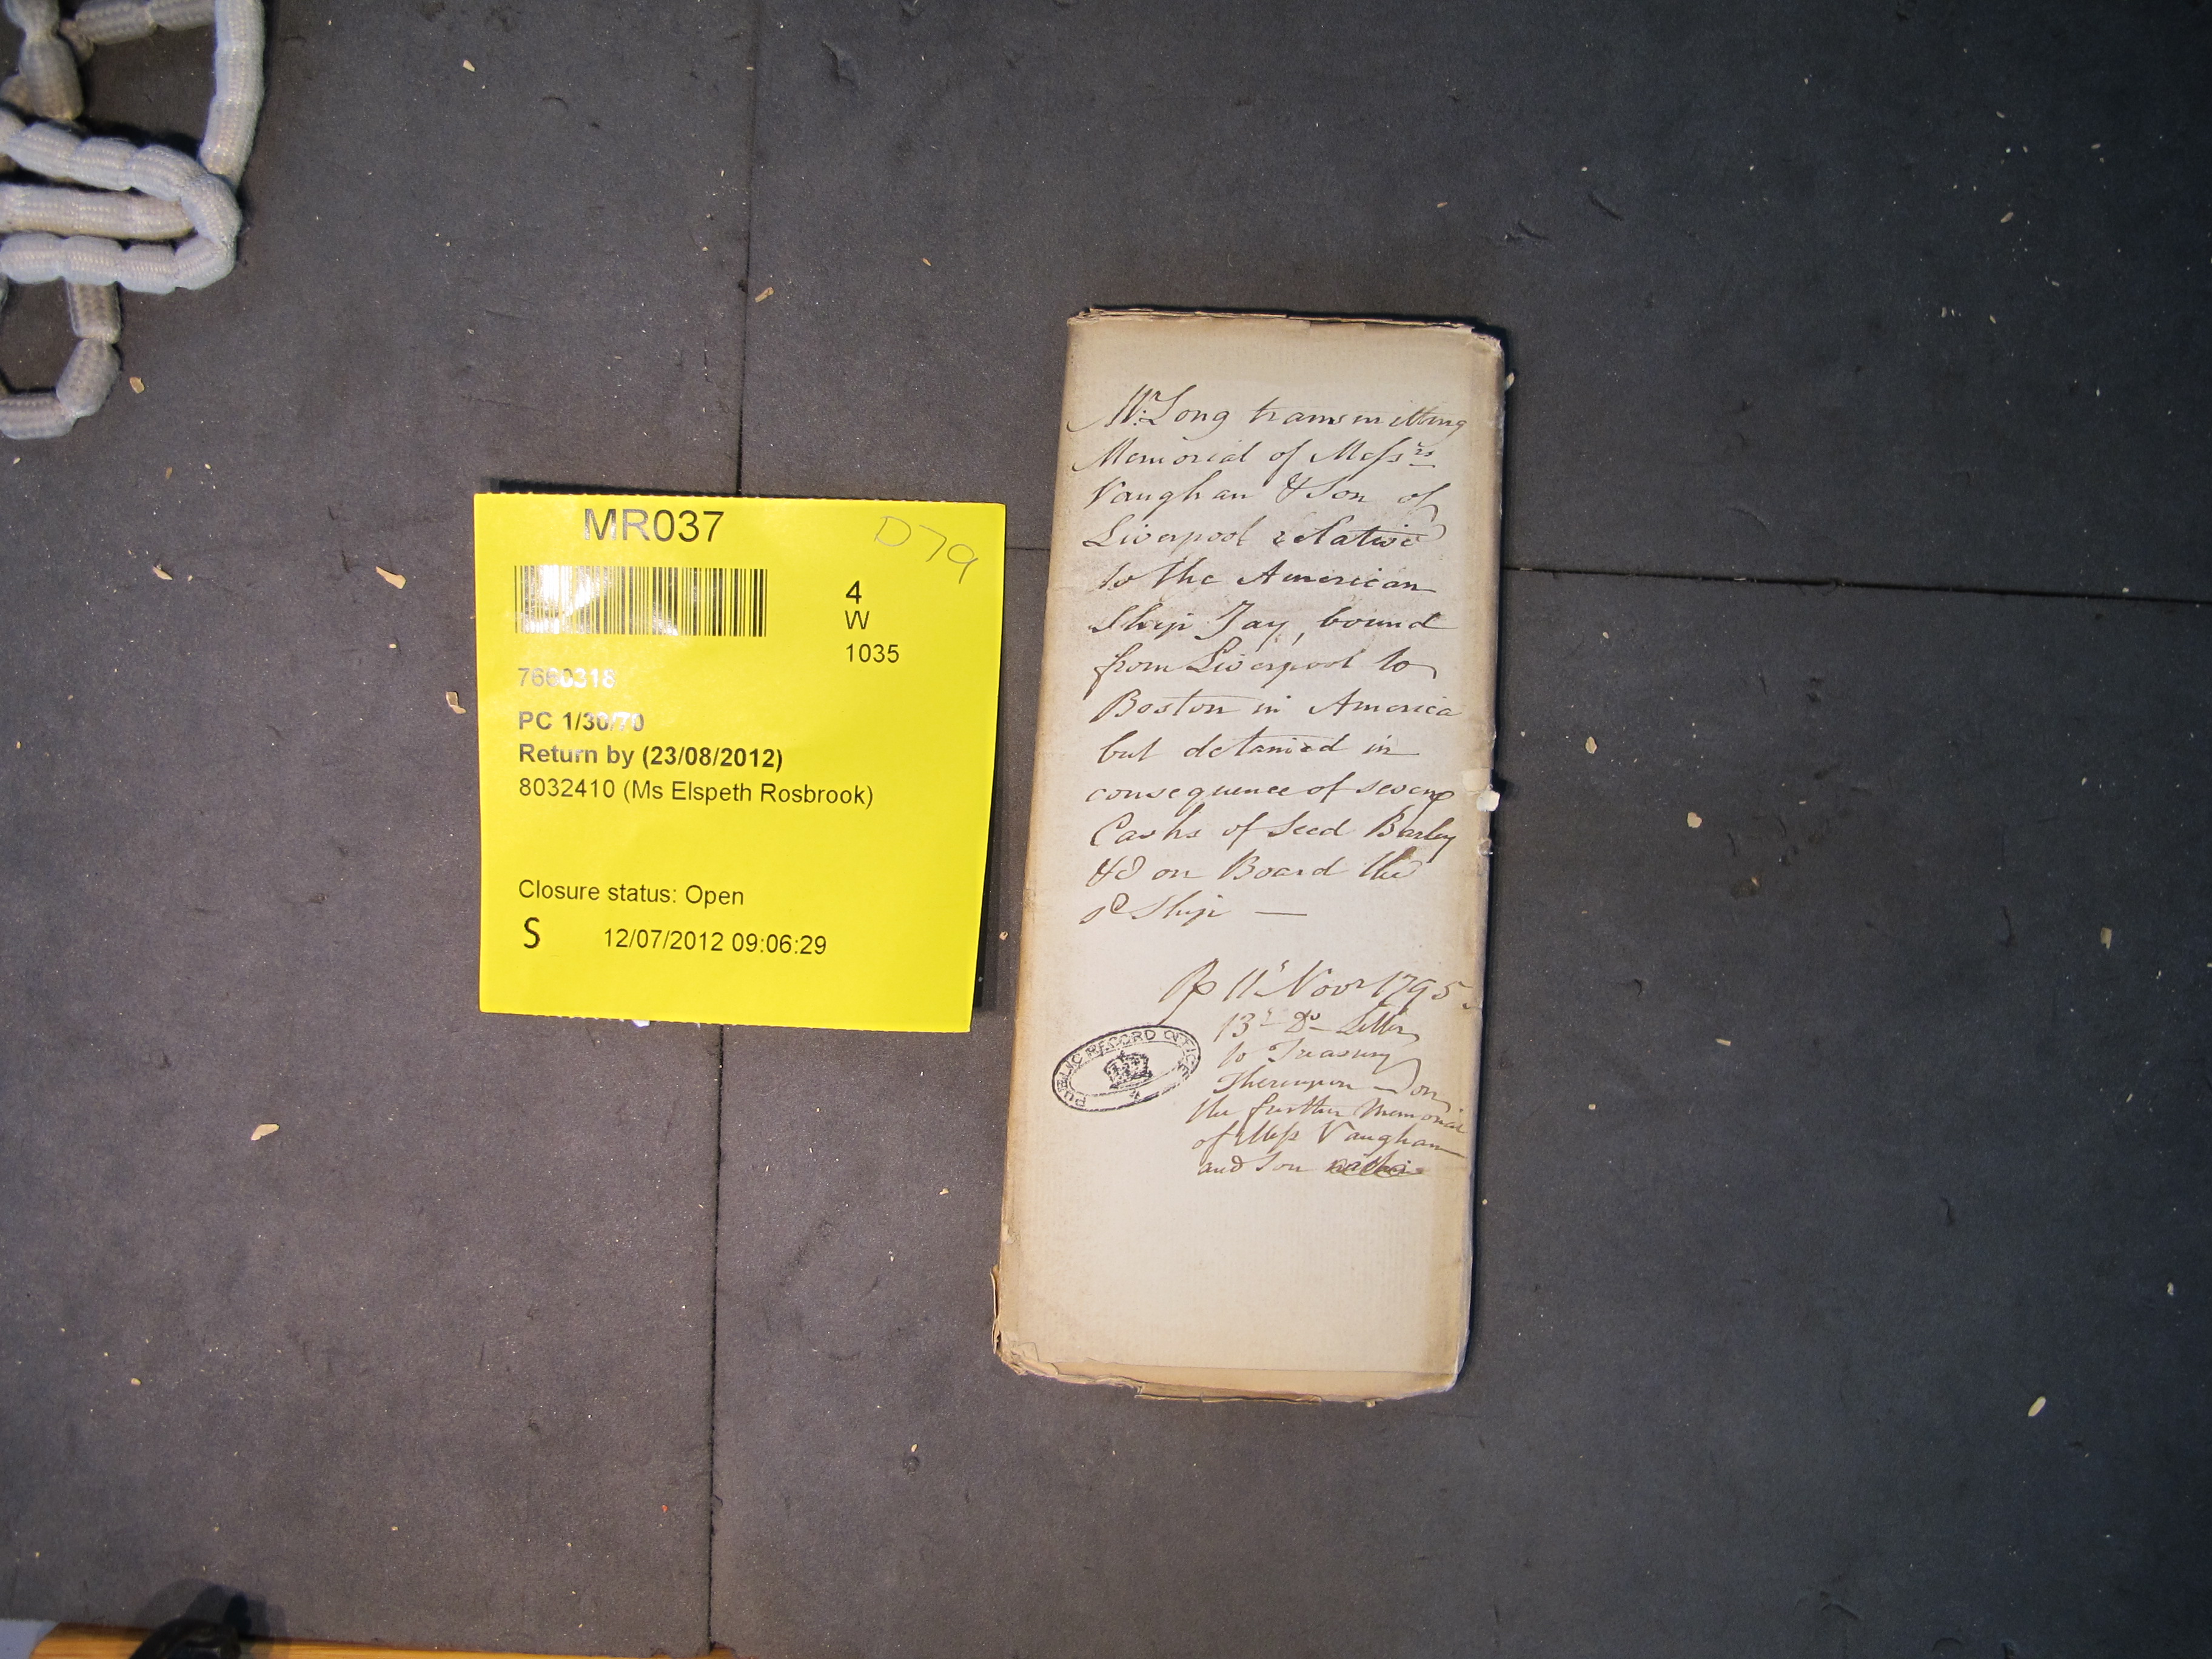 MR037
D79
4
W
1035
7660318
PC 1/30/70
Return by (23/08/2012)
8032410 (Ms Elspeth Rosbrook)
Closure status: Open
S 12/07/2012 09:06:29
Mr. Long transmitting
Memorial of Messrs
Vaughan & Son of
Liverpool relative
to the American
Ship Jay, bound
from Liverpool to
Boston in America
but detained in
consequence of seven
Casks of Seed Barley
&c on Board the
sd Ship —
11 Novr 1795.
13 Do Letter
to Treasury
Thereupon — on
the further Memorial
of Mess Vaughan
and Son
PUBLIC RECORD OFFICE